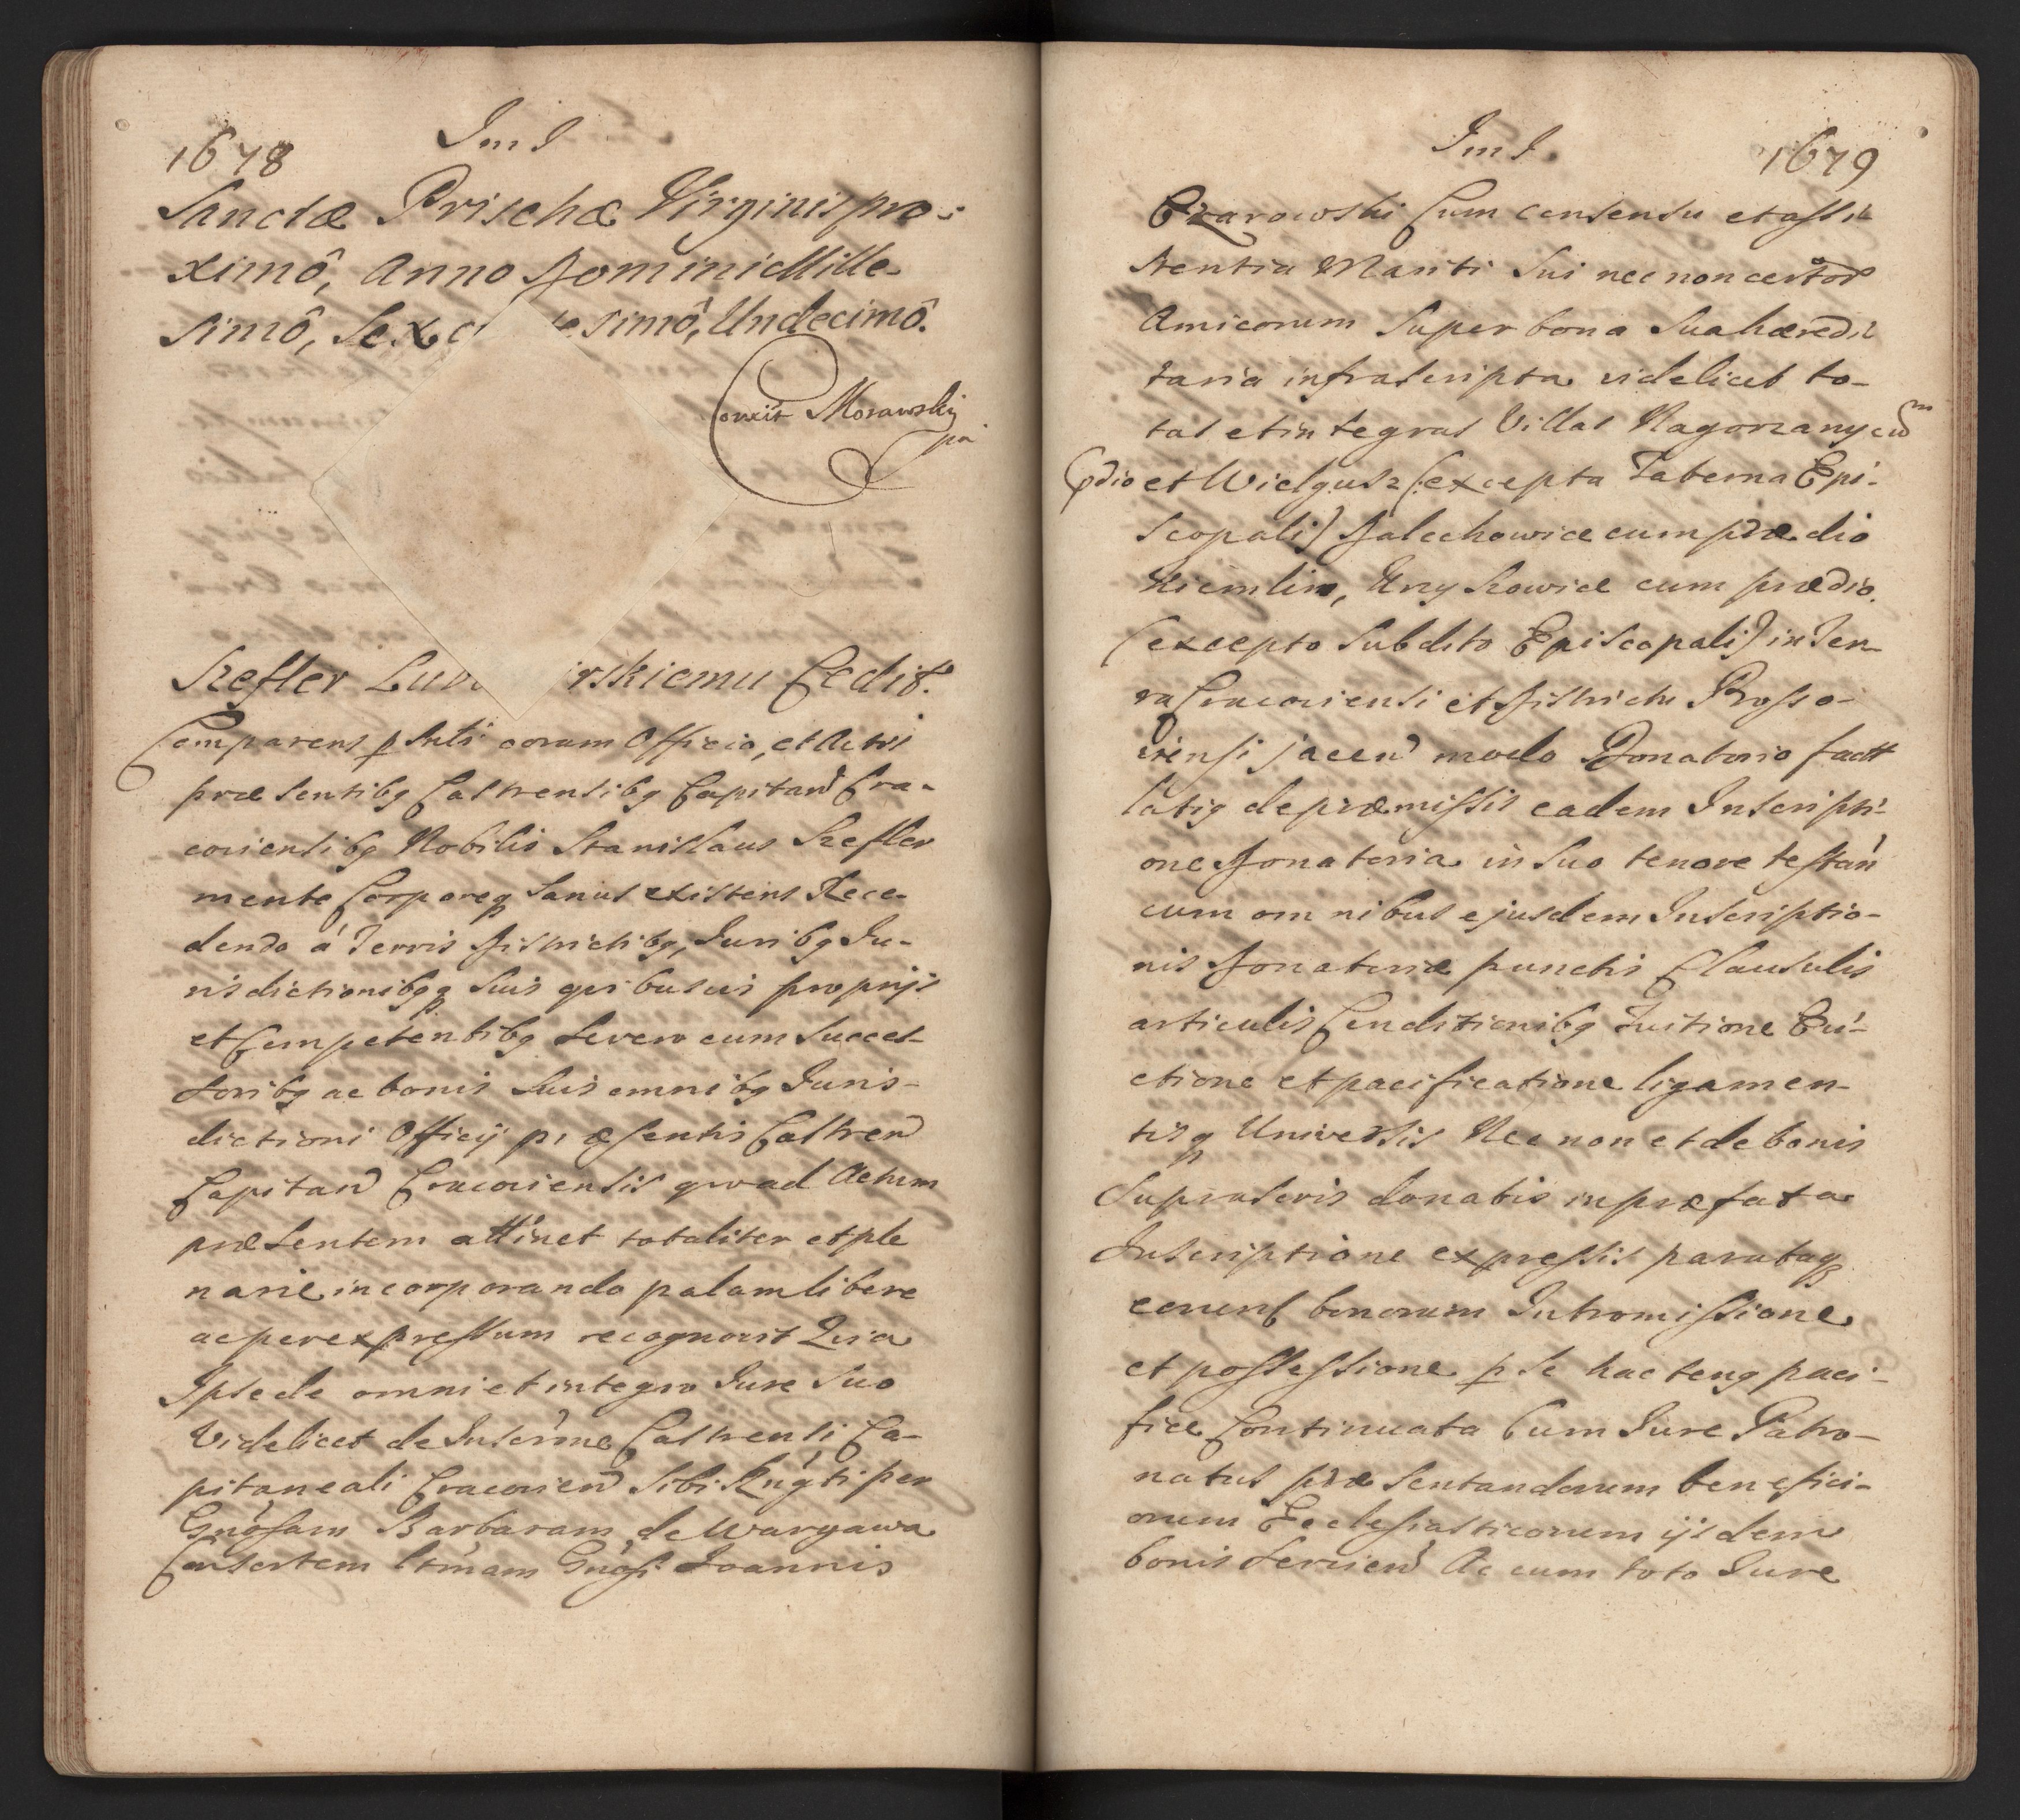 1678
Sanctæ Prischæ Virginis pro-
ximô, Anno Domini Mille-
simô, Sex simô, Undecimô.
Corexit Morawskj
Szefler rskiemu Cedit.
Comparens coram Officio, et Actis
præsentibq Castrensibq Capitan Cra-
coviensibq Nobilis Stanislaus Szefler
mente Corporeq Sanus existens Rece-
dendo á Terris Districtibq, Juribq Ju-
risdictionibqq Suis quibusvis proprijs
et Competentibq Severo cum Succes-
soribq ac bonis Suis omnibq Juris-
dictioni Officij præsentis Castren
Capitan Cracoviensis quoad Actum
præsentem attinet totaliter et ple
narie incorporando palam libere
ac per expressum recognovit Quia
Ipse de omni et integro Jure Suo
Videlicet de Inscrone Castrensi Ca-
pitaneali Cracovien Sibi per
Gnosam Barbaram de Wargawa
Consortem ltmam Gnosi Joannis
1679
Ozarowski Cum consensu et assi-
stentia Mariti Sui nec non certor
Amicorum Super bona Sua hæredi-
taria infrascripta videlicet to-
tas et integras Villas Nagorzany cu
pdio et Wielgusz (excepta Taberna Epi-
scopali) Dalechowice cum prædio
Kiemlin, Krzyszowice cum prædio
(excepto Subdito Episcopali) in Ter-
ra Cracoviensi et Districtu Prosso-
viensi jacen modo Donatorio fact
latiq de præmissis eadem Inscripti-
one Donatoria in Suo tenore testan
cum omnibus ejusdem Inscriptio-
nis Donatoriæ punctis Clausulis
articulis Conditionibq Tuitione Evi-
ctione et pacificatione ligamen-
tisq Universis Nec non et de bonis
Suprascris donatis in præfata
Inscriptione expressis parataq
eorund bonorum Intromissione
et possessione p Se hactenq paci-
fice Continuata Cum Jure Patro-
natus præsentandorum benefici-
orum Ecclesiasticorum ijsdem
bonis Servien Ac cum toto Jure